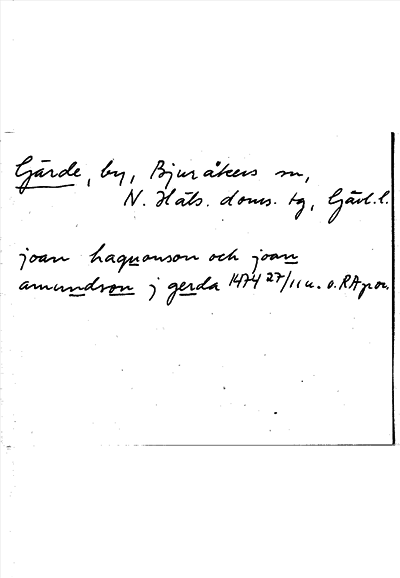 Gärde, by, Bjuråkers sn,
N. Häls. doms. tg, Gävl. l.
joan haquonson och joan
amundson j gerda 1474 27/11 u. o. RA por.